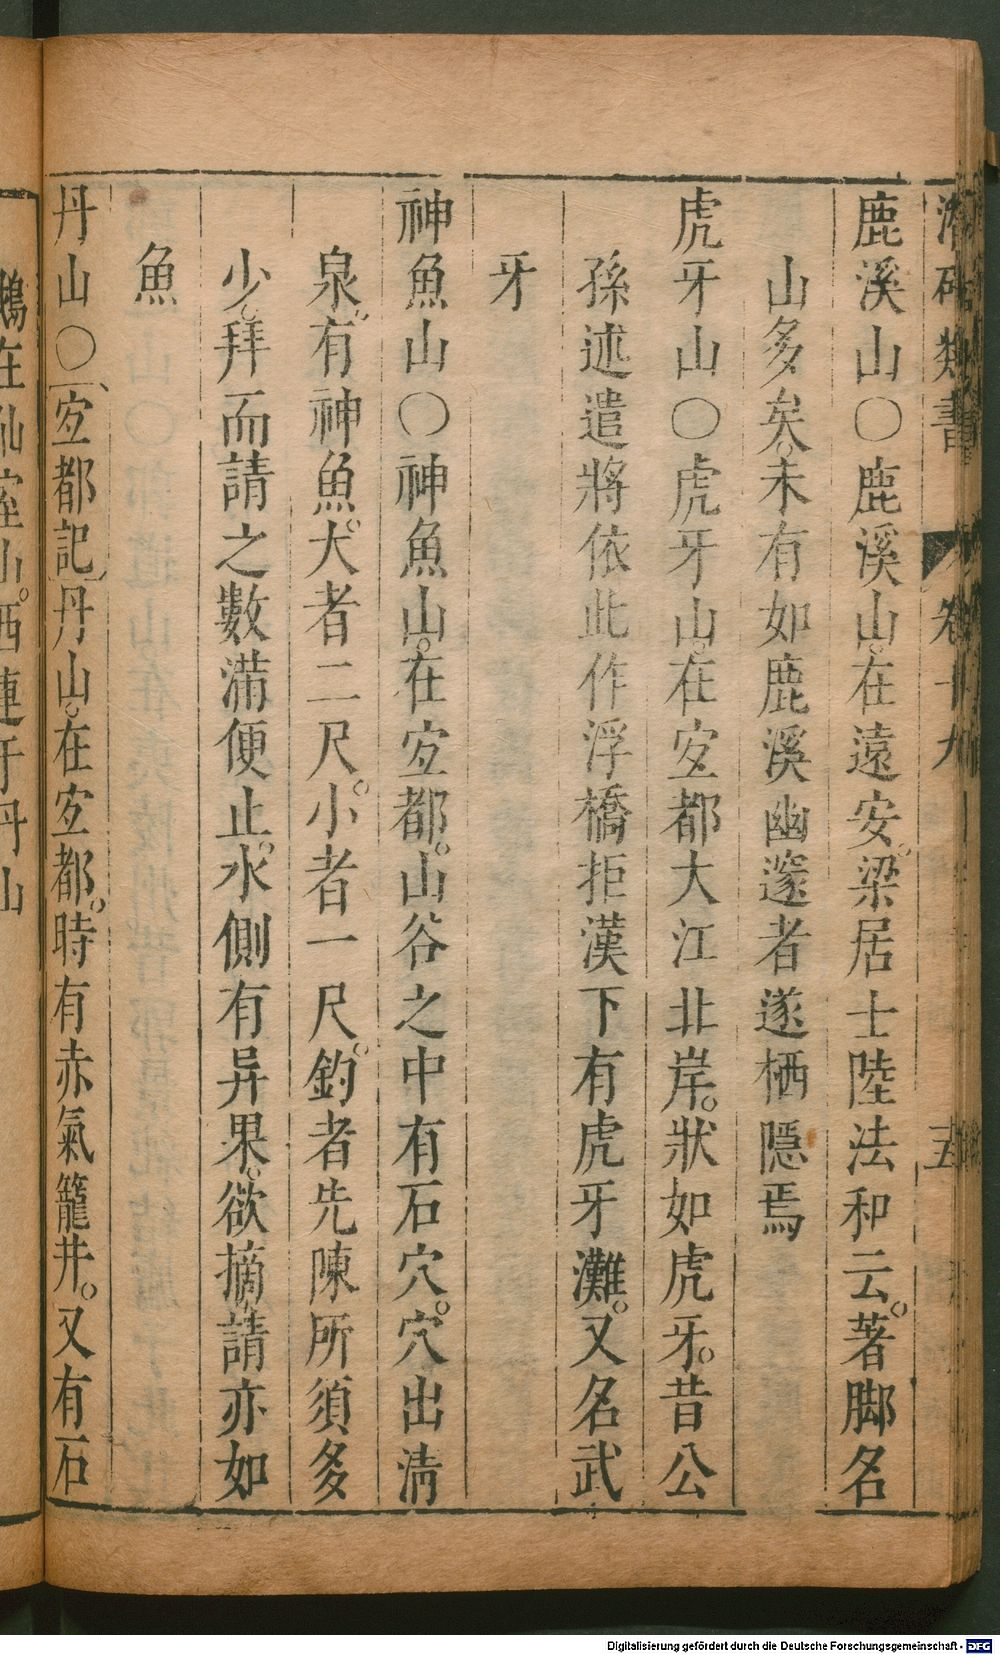 潛確類書 卷二十九 五
鹿溪山〇鹿溪山。在遠安。梁居士陸法和云。著脚名
山多矣。未有如鹿溪幽邃者遂栖隱焉
虎牙山〇虎牙山。在宐都大江北岸。狀如虎牙。昔公
孫述遣將依此作浮橋拒漢下有虎牙灘。又名武
牙
神魚山〇神魚山。在宐都。山谷之中有石穴。穴出清
泉。有神魚。大者二尺。小者一尺。釣者先陳所須多
少。拜而請之數滿便止。水側有异果。欲摘請亦如
魚
丹山〇〔宐都記〕丹山。在宐都。時有赤氣籠井。又有石
鵝在仙室山。西連于丹山
Digitalisierung gefördert durch die Deutsche Forschungsgemeinschaft - DFG